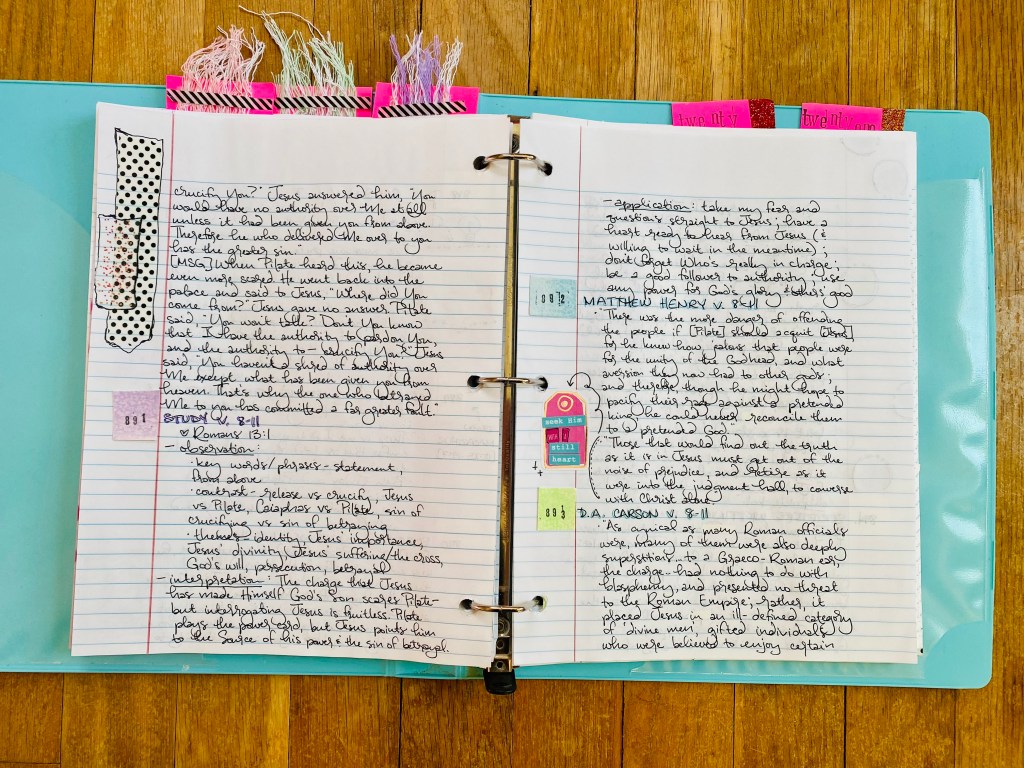 twenty
twenty
crucify You?" Jesus answered him, "You
would have no authority over Me at all
unless it had been given you from above.
Therefore he who delivered Me over to you
has the greater sin."
[MSG] When Pilate heard this, he became
even more scared. He went back into the
palace and said to Jesus, "Where did You
come from?" Jesus gave no answer. Pilate
said, "You won't talk? Don't You know
that I have the authority to pardon You,
and the authority to - crucify You?" Jesus
said, "You haven't a shred of authority over
Me except what has been given you from
heaven. That's why the one who betrayed
Me to you has committed a far greater fault."
891
STUDY v. 8-11
Romans 13:1
- observation:
· key words/phrases - statement,
from above
· contrast - release vs crucify, Jesus
vs Pilate, Caiaphas vs Pilate, sin of
crucifying vs sin of betraying
· themes - identity, Jesus' innocence,
Jesus' divinity, Jesus' suffering/the cross,
God's will, persecution, betrayal
- interpretation: The charge that Jesus
has made Himself God's Son scares Pilate -
but interrogating Jesus is fruitless. Pilate
plays the power card, but Jesus points him
to the Source of his power & the sin of betrayal.
- application: take my fear and
questions straight to Jesus; have a
heart ready to hear from Jesus (&
willing to wait in the meantime);
don't forget Who's really in charge;
be a good follower to authority; use
any power for God's glory & others' good
892
MATTHEW HENRY v. 8-11
· "There was the more danger of offending
the people if [Pilate] should acquit [Jesus]
for he knew how jealous that people were
for the unity of the Godhead, and what
aversion they now had to other gods;
and therefore, though he might hope to
pacify their rage against a pretended
king, he could never reconcile them
to a pretended God."
· "Those that would find out the truth
as it is in Jesus must get out of the
noise of prejudice, and retire as it
were into the judgment-hall, to converse
with Christ alone."
seek Him
still
heart
893
D.A. CARSON v. 8-11
· "As cynical as many Roman officials
were, many of them were also deeply
superstitious... to a Graeco-Roman ear,
the charge... had nothing to do with
blasphemy, and presented no threat
to the Roman Empire; rather, it
placed Jesus in an ill-defined category
of 'divine men', gifted individuals
who were believed to enjoy certain